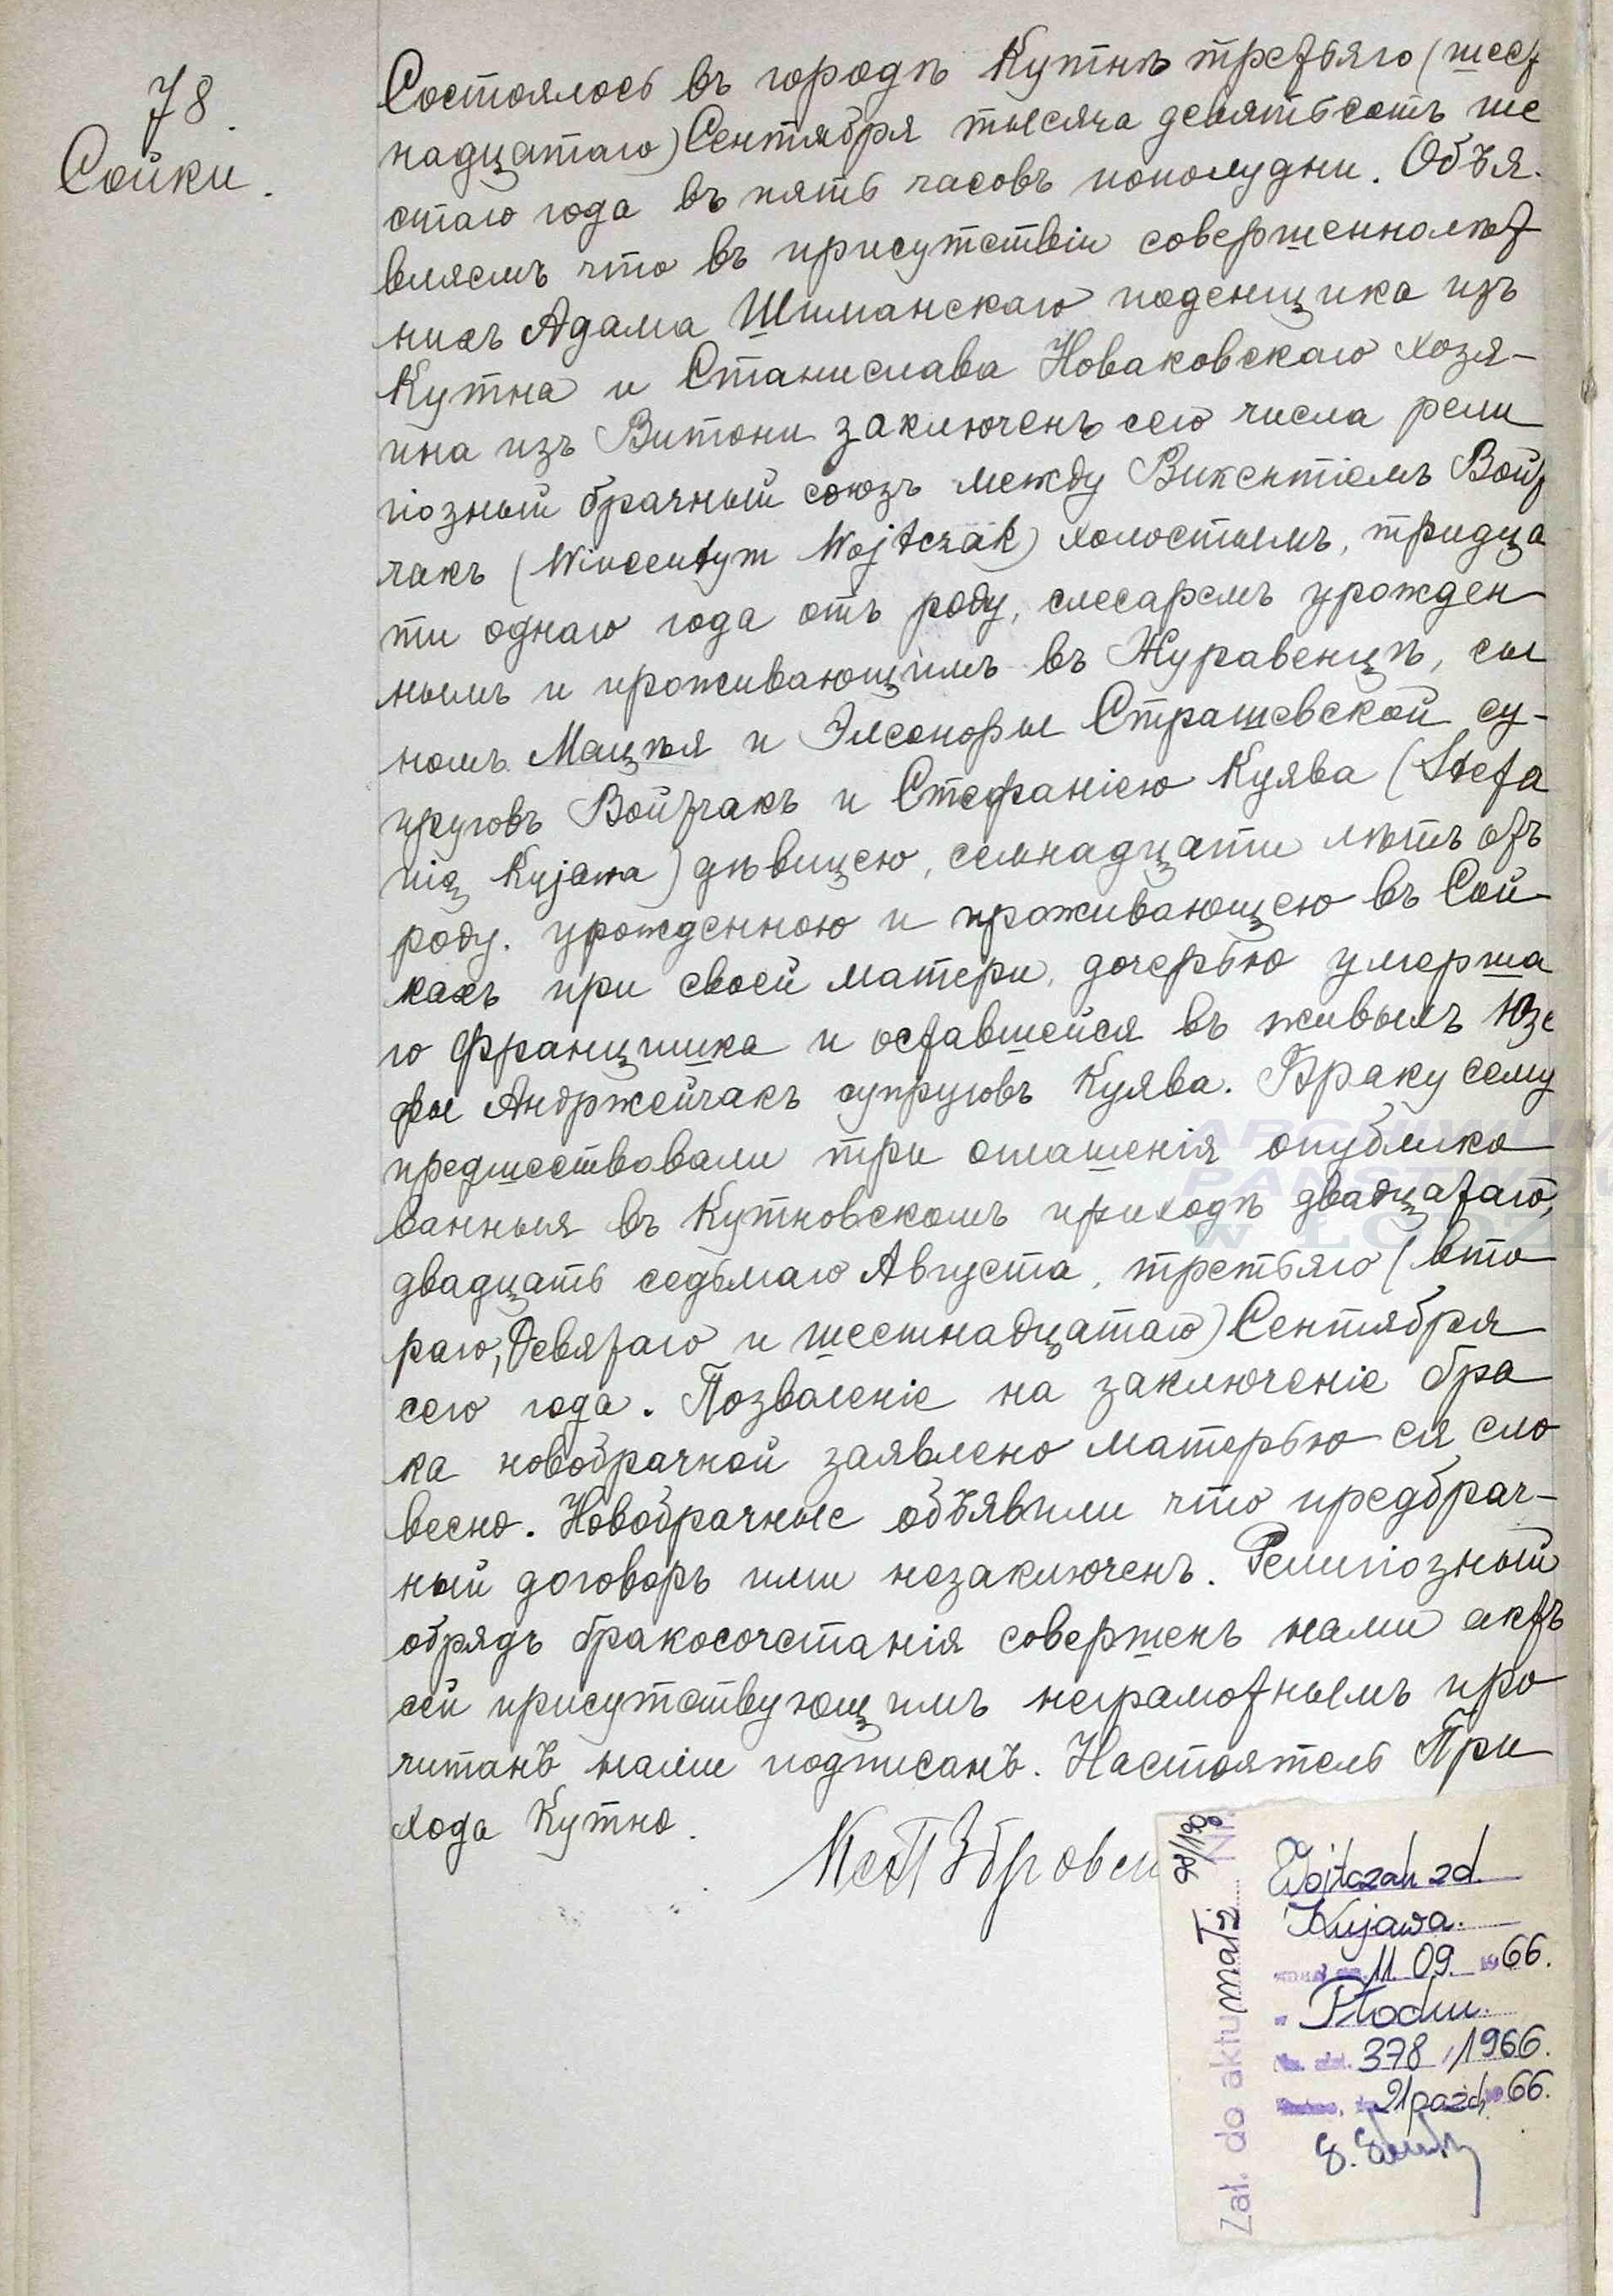 78.
Сойки.
Состоялось въ городѣ Кутнѣ третьяго (шест
надцатаго) Сентября тысяча девятьсотъ ше
стаго года въ пять часовъ пополудни. Объя-
вляемъ что въ присутствіи совершеннолѣт
нихъ Адама Шиманскаго поденщика изъ
Кутна и Станислава Новаковскаго хозя-
ина изъ Витони заключенъ сего числа рели
гіозный брачный союзъ между Викентіемъ Войт
чакъ (Wincentym Wojtczak) холостымъ, тридца
ти однаго года отъ роду, слесаремъ урожден
нымъ и проживающимъ въ Журавенцѣ, сы
номъ Мацѣя и Элеоноры Страшевской су-
пруговъ Войтчакъ и Стефаніею Куява (Stefa
nią Kujawa) дѣвицею, семнадцати лѣтъ отъ
роду. урожденною и проживающею въ Сой-
кахъ при своей матери, дочерью умерша
го Францишка и оставшейся въ живыхъ Юзе
фы Андржейчакъ супруговъ Куява. Браку сему
предшествовали три оглашенія опублико
ванныя въ Кутновскомъ приходѣ двадцатаго,
двадцать седьмаго Августа, третьяго (вто
раго, девятаго и шестнадцатаго) Сентября
сего года. Позволеніе на заключеніе бра
ка новобрачной заявлено матерью ея сло
весно. Новобрачные объявили что предбрач-
ный договоръ ими незаключенъ. Религіозный
обрядъ бракосочетанія совершенъ нами актъ
сей присутствующимъ неграмотнымъ про
читанъ нами подписанъ. Настоятель При
хода Кутно.
ARCHIWUM
PAŃSTWOW
W ŁODZI
Zał. do aktu małż. Nr 78/190
Wojtczak zd.
Kujawa.
11 09. 1966.
Płocku.
378 /1966.
21 paźd. 1966.